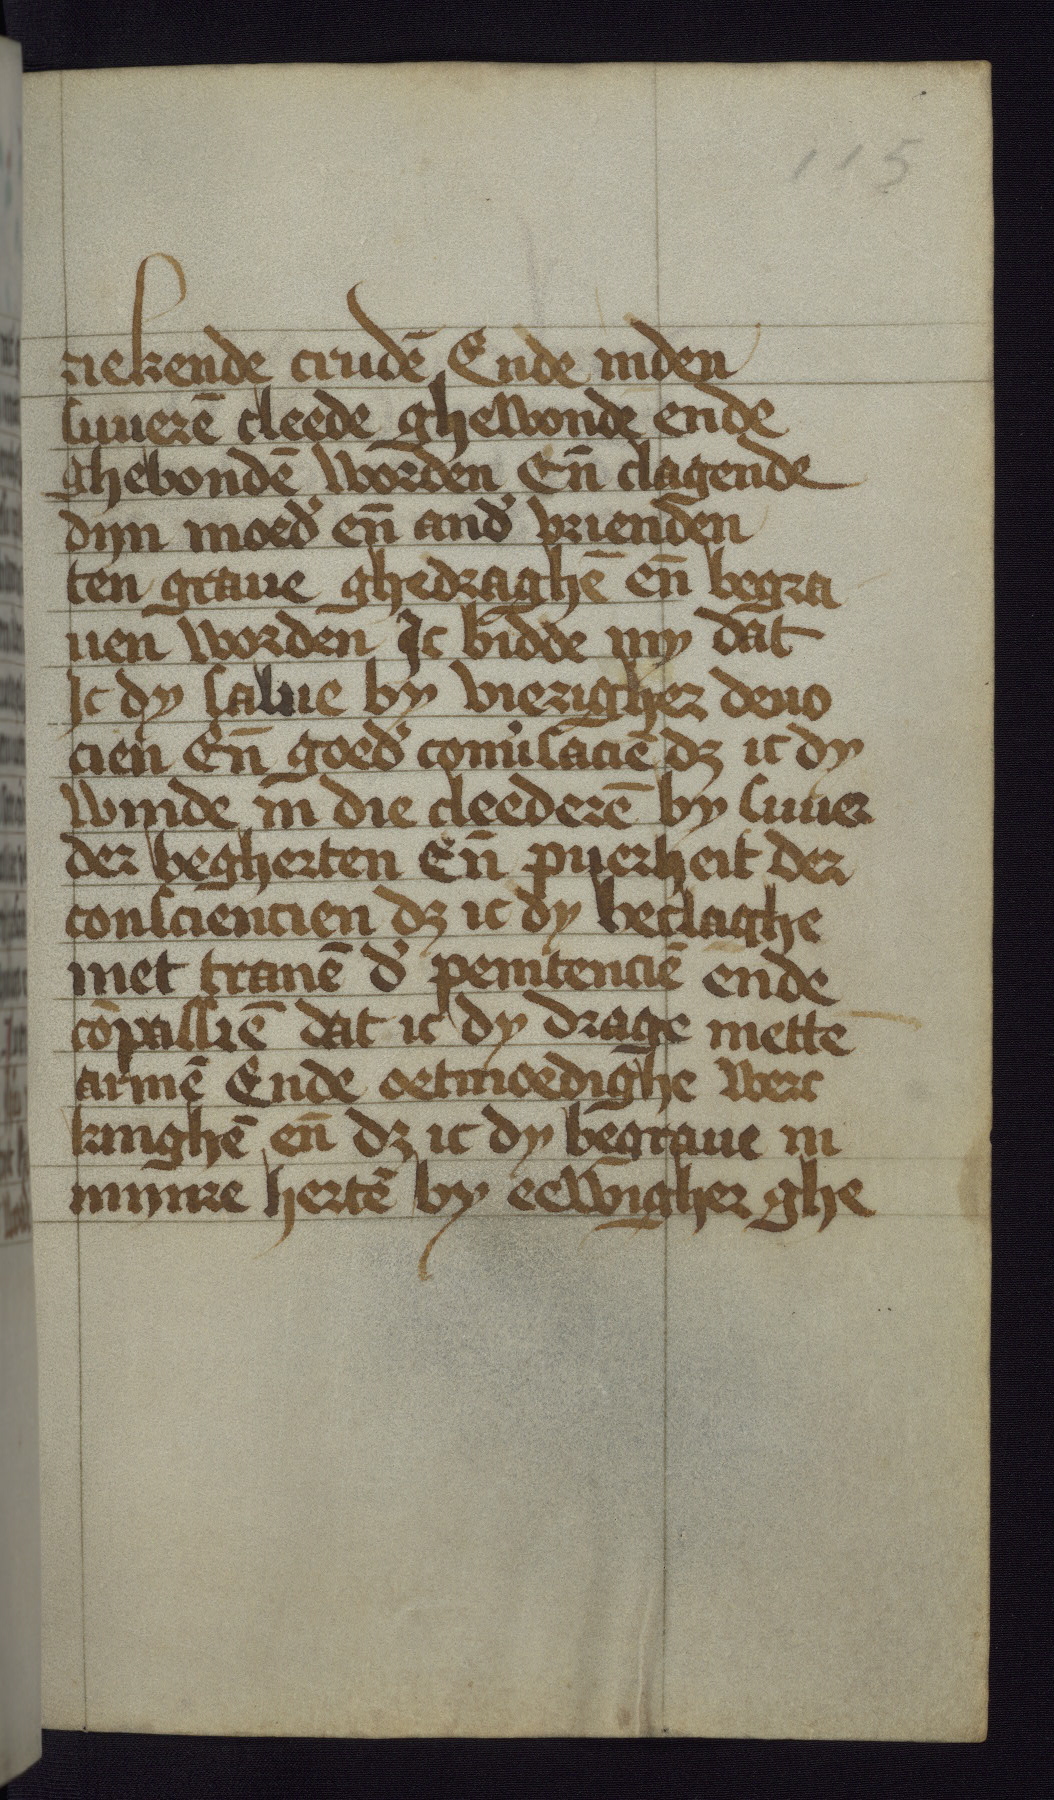 115
riekende crudē Ende inden
suuerē cleede ghewonde ende
ghebondē worden Eñ clagende
dijn moed' eñ and' vrienden
ten graue ghedraghē eñ begra
uen worden Ic bidde my dat
Ic dy salue by vierigher deuo
cien Eñ goed' conu'sacie dꝫ ic dy
winde in die cleederē by suuer
der begherten Eñ puerheit der
consciencien dꝫ ic dy beclaghe
met tranē d' penitenciē ende
cōpassiē dat ic dy drage mettē
armē Ende oetmoedighe werc
kinghē eñ dꝫ ic dy begraue in
mijnre hertē by eewigher ghe